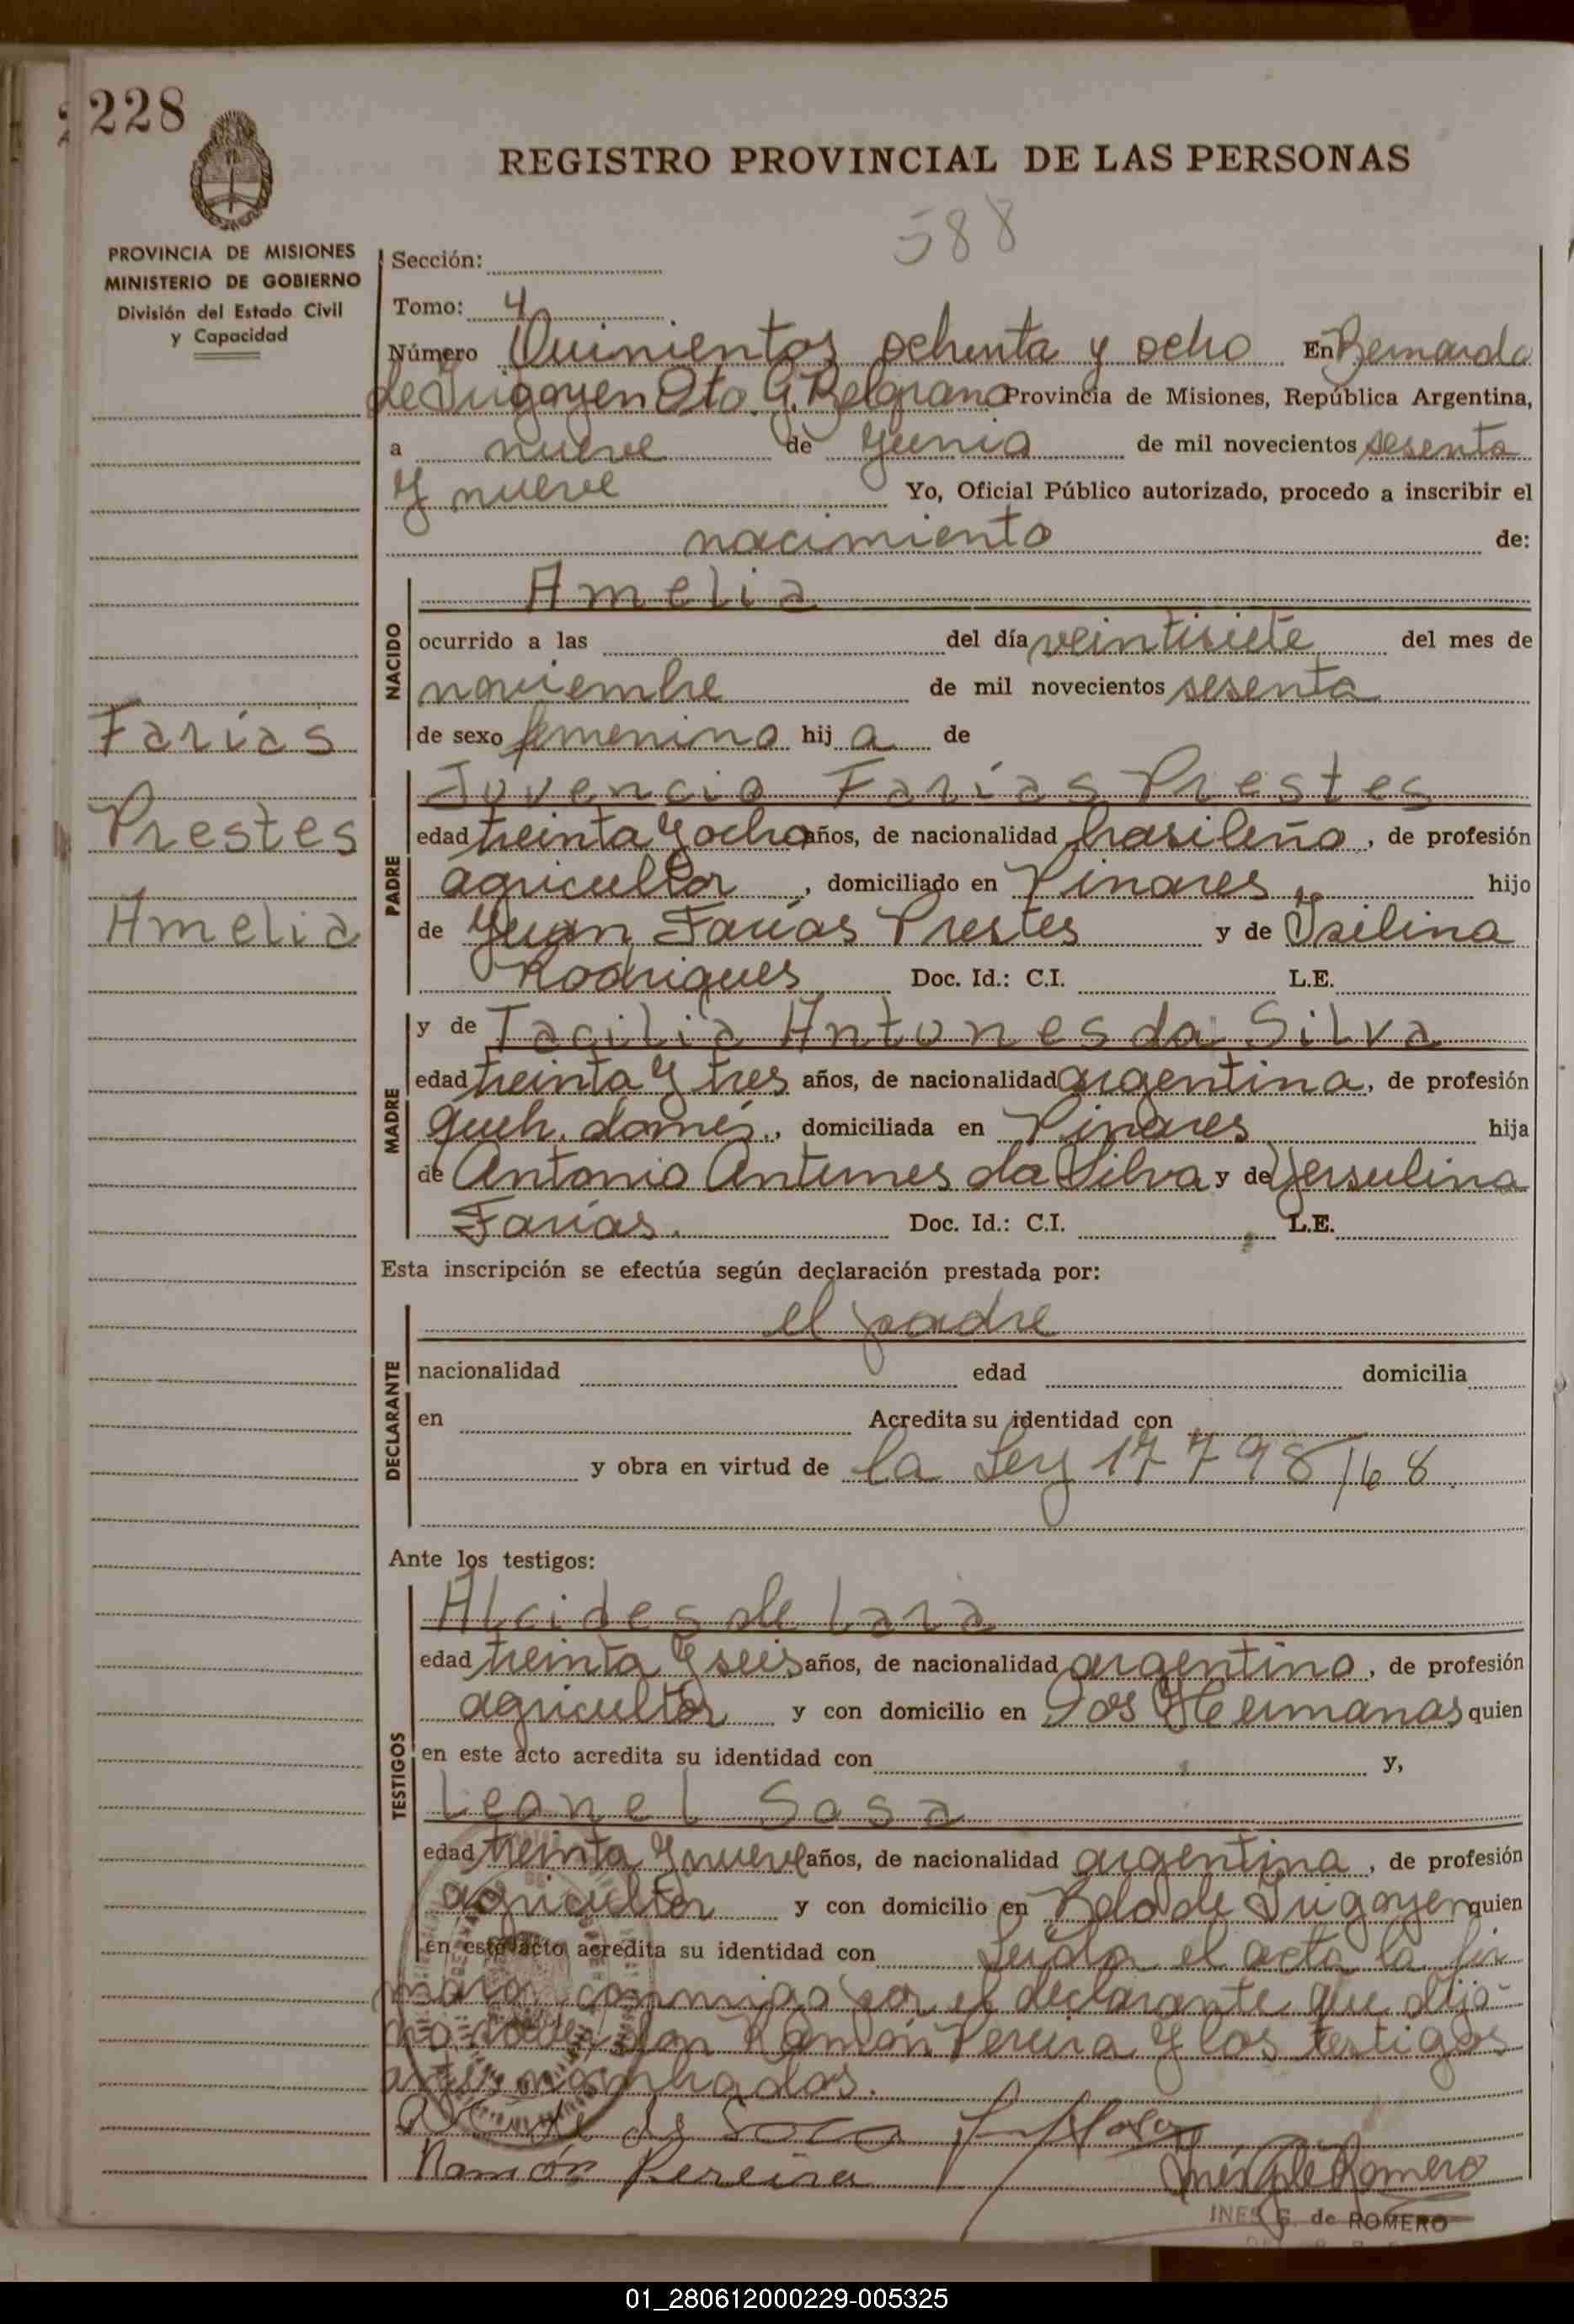 228
REGISTRO PROVINCIAL DE LAS PERSONAS
588
PROVINCIA DE MISIONES
MINISTERIO DE GOBIERNO
División del Estado Civil
y Capacidad
Sección:
Tomo: 4
Número Quinientos ochenta y ocho En Bernardo
de Irigoyen Dto. G. Belgrano Provincia de Misiones, República Argentina,
a nueve de Junio de mil novecientos sesenta
y nueve Yo, Oficial Público autorizado, procedo a inscribir el
nacimiento de:
NACIDO
Amelia
ocurrido a las del día veintisiete del mes de
noviembre de mil novecientos sesenta
de sexo femenino hij a de
Farías
Prestes
Amelia
PADRE
Juvencio Farías Prestes
edad treinta y ocho años, de nacionalidad brasileño, de profesión
agricultor, domiciliado en Pinares hijo
de Juan Farías Prestes y de Isilina
Rodrigues Doc. Id.: C.I. L.E.
MADRE
y de Tacilia Antones da Silva
edad treinta y tres años, de nacionalidad argentina, de profesión
queh. domés., domiciliada en Pinares hija
de Antonio Antunes da Silva y de Jersulina
Farías. Doc. Id.: C.I. L.E.
Esta inscripción se efectúa según declaración prestada por:
DECLARANTE
el padre
nacionalidad edad domicilia
en Acredita su identidad con
y obra en virtud de la Ley 17798/68.
Ante los testigos:
TESTIGOS
Alcides de Lara
edad treinta y seis años, de nacionalidad argentino, de profesión
agricultor y con domicilio en Dos Hermanas quien
en este acto acredita su identidad con y,
Leonel Sosa
edad treinta y nueve años, de nacionalidad argentina, de profesión
agricultor y con domicilio en Bdo de Irigoyen quien
en este acto acredita su identidad con Leida el acta la fir
maron conmigo por el declarante que dijo
no saber don Ramón Pereira y los testigos
antes nombrados.
Ramón Pereira
Inés G de Romero
INES G. de ROMERO
01_280612000229-005325